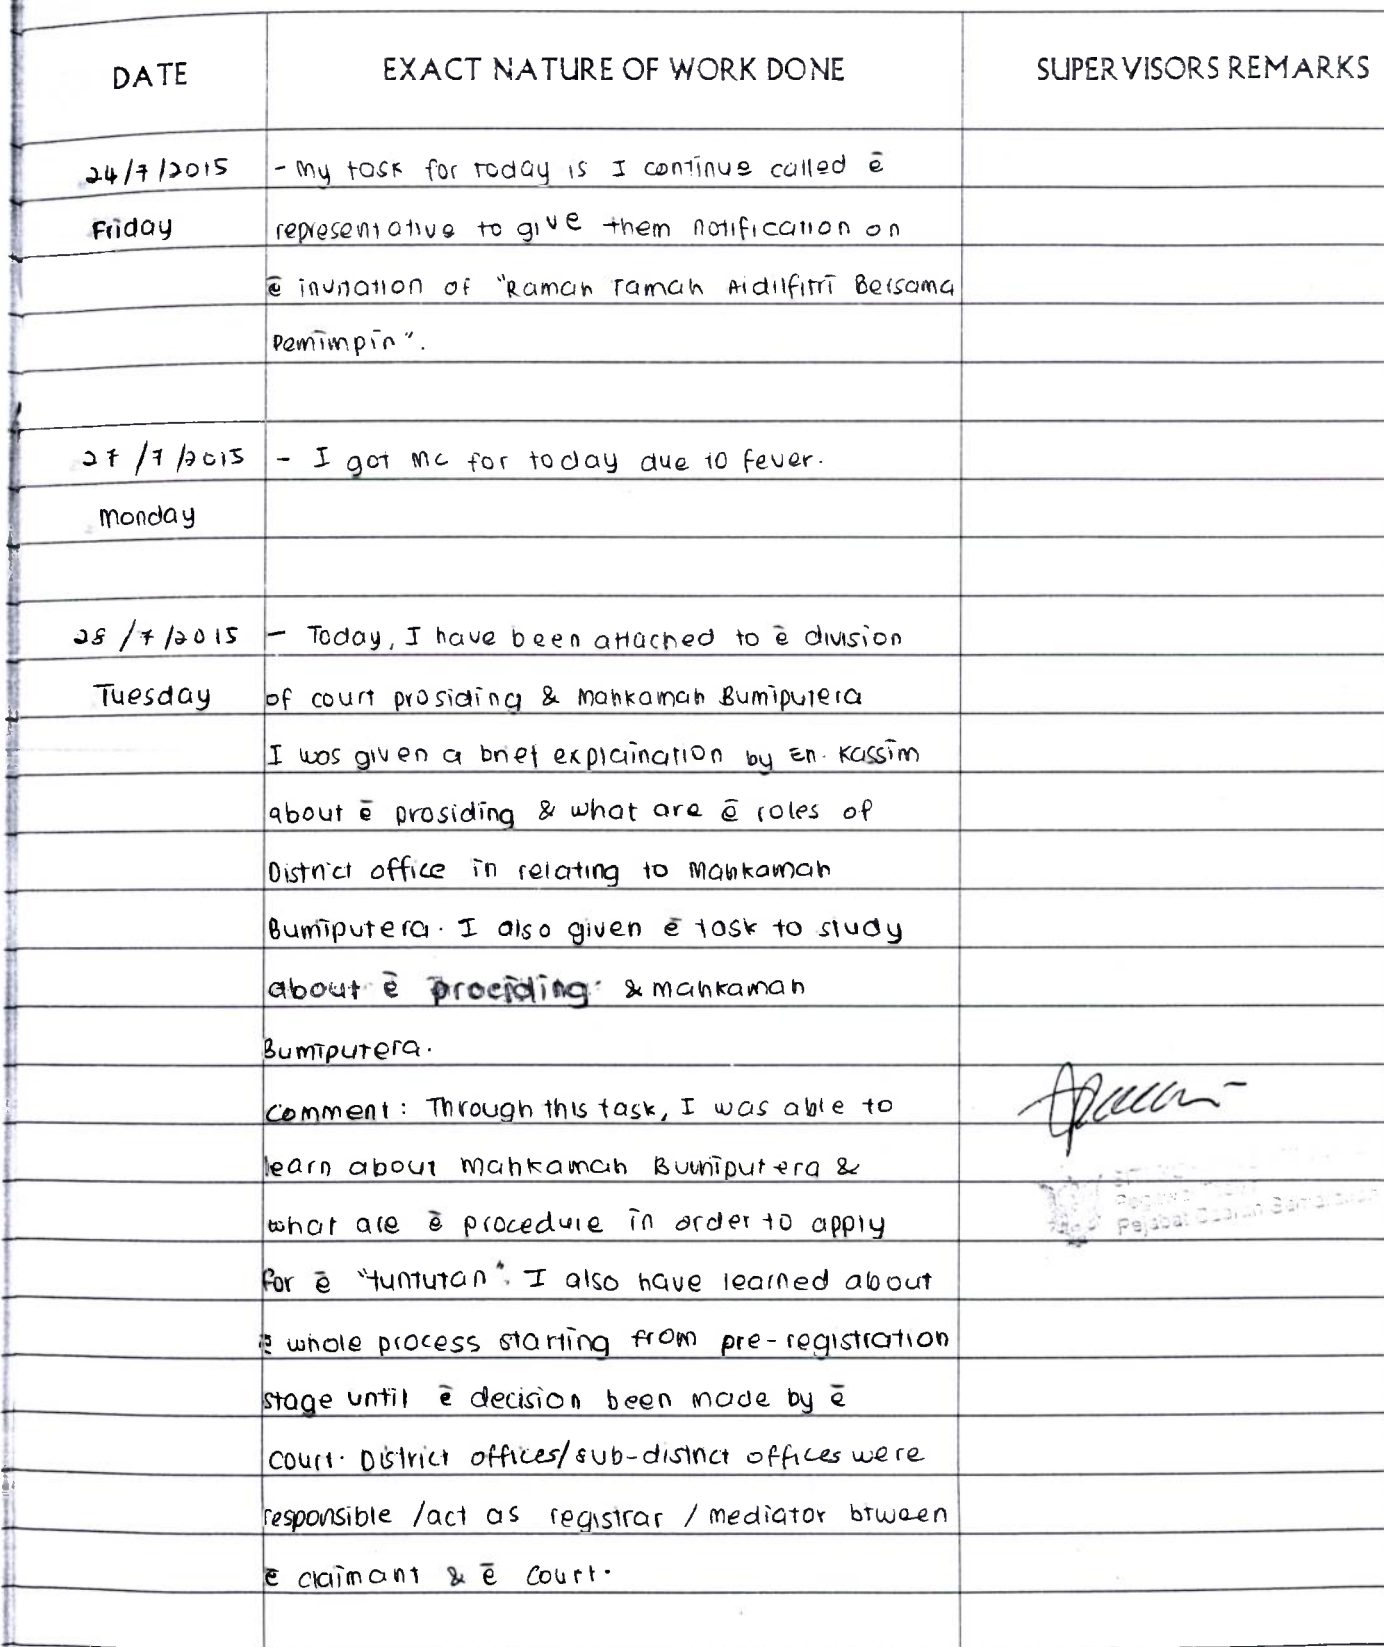 DATE EXACT NATURE OF WORK DONE SUPERVISORS REMARKS
24/7/2015 - My task for today is I continue called ē
Friday representative to give them notification on
ē invitation of "Ramah Tamah Aidilfitri Bersama
Pemimpin".
27/7/2015 - I got MC for today due to fever.
Monday
28/7/2015 - Today, I have been attached to ē division
Tuesday of court prosiding & Mahkamah Bumiputera
I was given a brief explaination by En. Kassim
about ē prosiding & what are ē roles of
District office in relating to Mahkamah
Bumiputera. I also given ē task to study
about ē prociding & mahkamah
Bumiputera.
Comment: Through this task, I was able to
learn about Mahkamah Bumiputera &
what are ē procedure in order to apply
for ē "tuntutan". I also have learned about
ē whole process starting from pre-registration
stage until ē decision been made by ē
court. District offices/sub-district offices were
responsible /act as registrar / mediator btween
ē claimant & ē court.
Pejabat Daerah